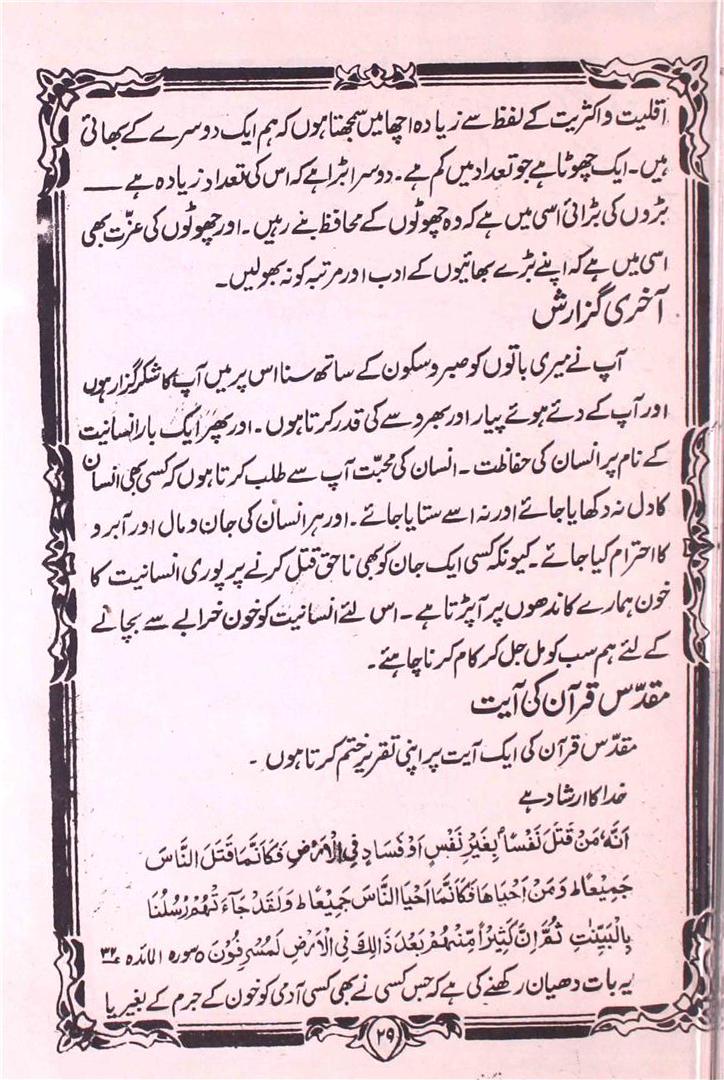 اقلیت و اکثریت کے لفظ سے زیادہ اچھا میں سمجھتا ہوں کہ ہم ایک دوسرے کے بھائی
ہیں۔ ایک چھوٹا ہے جو تعداد میں کم ہے۔ دوسرا بڑا ہے کہ اس کی تعداد زیادہ ہے ——
بڑوں کی بڑائی اسی میں ہے کہ وہ چھوٹوں کے محافظ بنے رہیں۔ اور چھوٹوں کی عزّت بھی
اسی میں ہے کہ اپنے بڑے بھائیوں کے ادب اور مرتبہ کو نہ بھولیں۔
آخری گزارش
آپ نے میری باتوں کو صبر و سکون کے ساتھ سنا اس پر میں آپ کا شکر گزار ہوں
اور آپ کے دئے ہوئے پیار اور بھروسے کی قدر کرتا ہوں۔ اور پھر ایک بار انسانیت
کے نام پر انسان کی حفاظت۔ انسان کی محبّت آپ سے طلب کرتا ہوں کہ کسی بھی انسان
کا دل نہ دکھایا جائے اور نہ اسے ستایا جائے۔ اور ہر انسان کی جان و مال اور آبرو
کا احترام کیا جائے۔ کیونکہ کسی ایک جان کو بھی ناحق قتل کرنے پر پوری انسانیت کا
خون ہمارے کاندھوں پر آپڑتا ہے۔ اس لئے انسانیت کو خون خرابے سے بچانے
کے لئے ہم سب کو مل جل کر کام کرنا چاہئے۔
مقدّس قرآن کی آیت
مقدّس قرآن کی ایک آیت پر اپنی تقریر ختم کرتا ہوں۔
خدا کا ارشاد ہے
اَنَّهٗ مَنْ قَتَلَ نَفْسًا بِغَيْرِ نَفْسٍ اَوْ فَسَادٍ فِي الْاَرْضِ فَكَاَنَّمَا قَتَلَ النَّاسَ
جَمِيْعًا ط وَمَنْ اَحْيَاهَا فَكَاَنَّمَا اَحْيَا النَّاسَ جَمِيْعًا ط وَلَقَدْ جَآءَتْهُمْ رُسُلُنَا
بِالْبَيِّنٰتِ ثُمَّ اِنَّ كَثِيْرًا مِّنْهُمْ بَعْدَ ذَالِكَ فِي الْاَرْضِ لَمُسْرِفُوْنَ ۝ سورہ المائدہ ع ۳۲
یہ بات دھیان رکھنے کی ہے کہ جس کسی نے بھی کسی آدمی کو خون کے جرم کے بغیر یا
۲۹